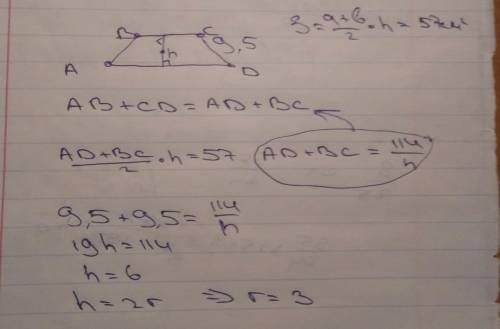 B C
S = a+b/2 · h = 57см²
9,5
h
A D
AB + CD = AD + BC
AD + BC/2 · h = 57
AD + BC = 114/h
9,5 + 9,5 = 114/h
19h = 114
h = 6
h = 2r ⇒ r = 3